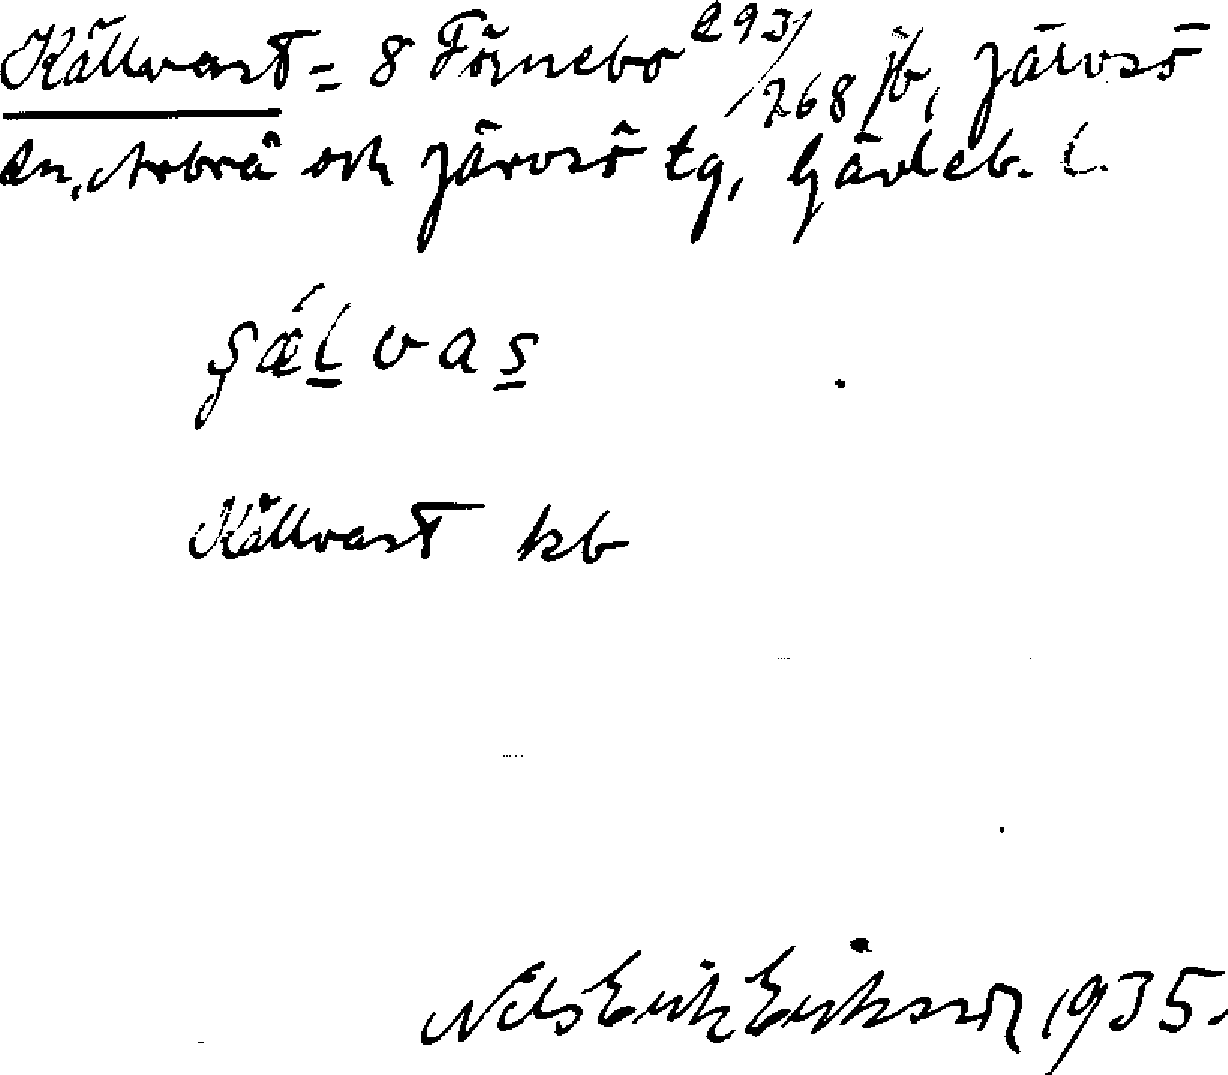 Källvast = 8 Förnebo 293/268 jb, Järvsö
sn, Arbrå och Järvsö tg, Gävleb. l.
Källvast kb
Nils Erik Eriksson 1935.